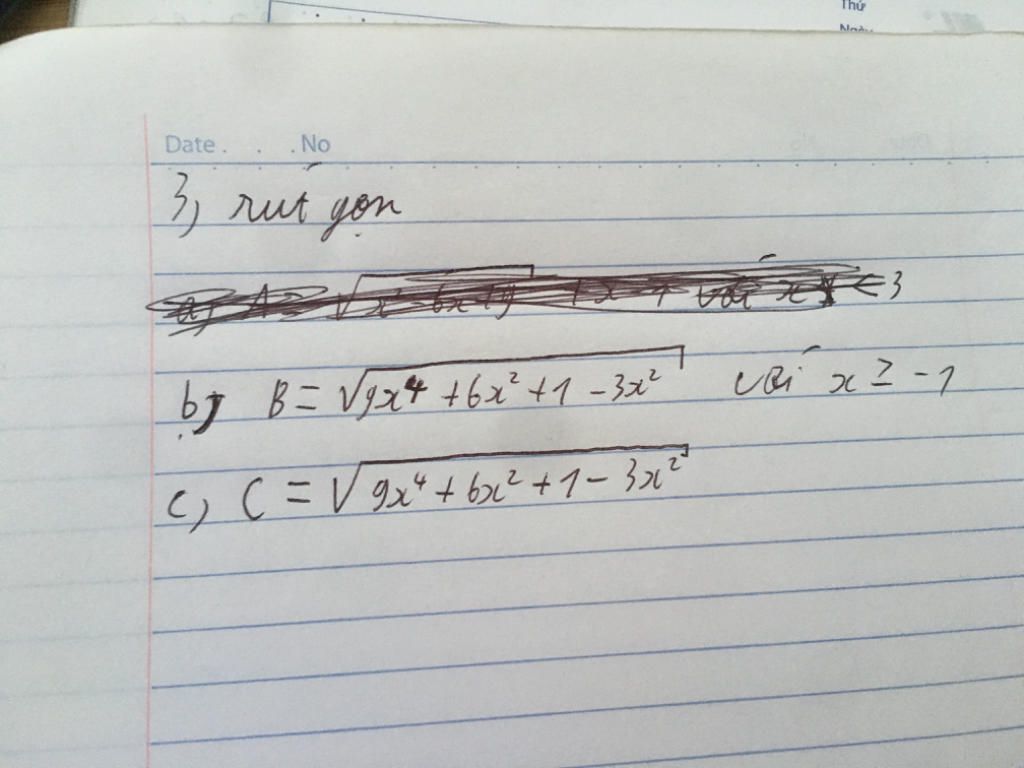 Thứ
Ngày
Date . . . No
3, rút gọn
b) B = √(9x⁴ + 6x² + 1 - 3x²) với x ≥ -1
c, C = √(9x⁴ + 6x² + 1 - 3x²)